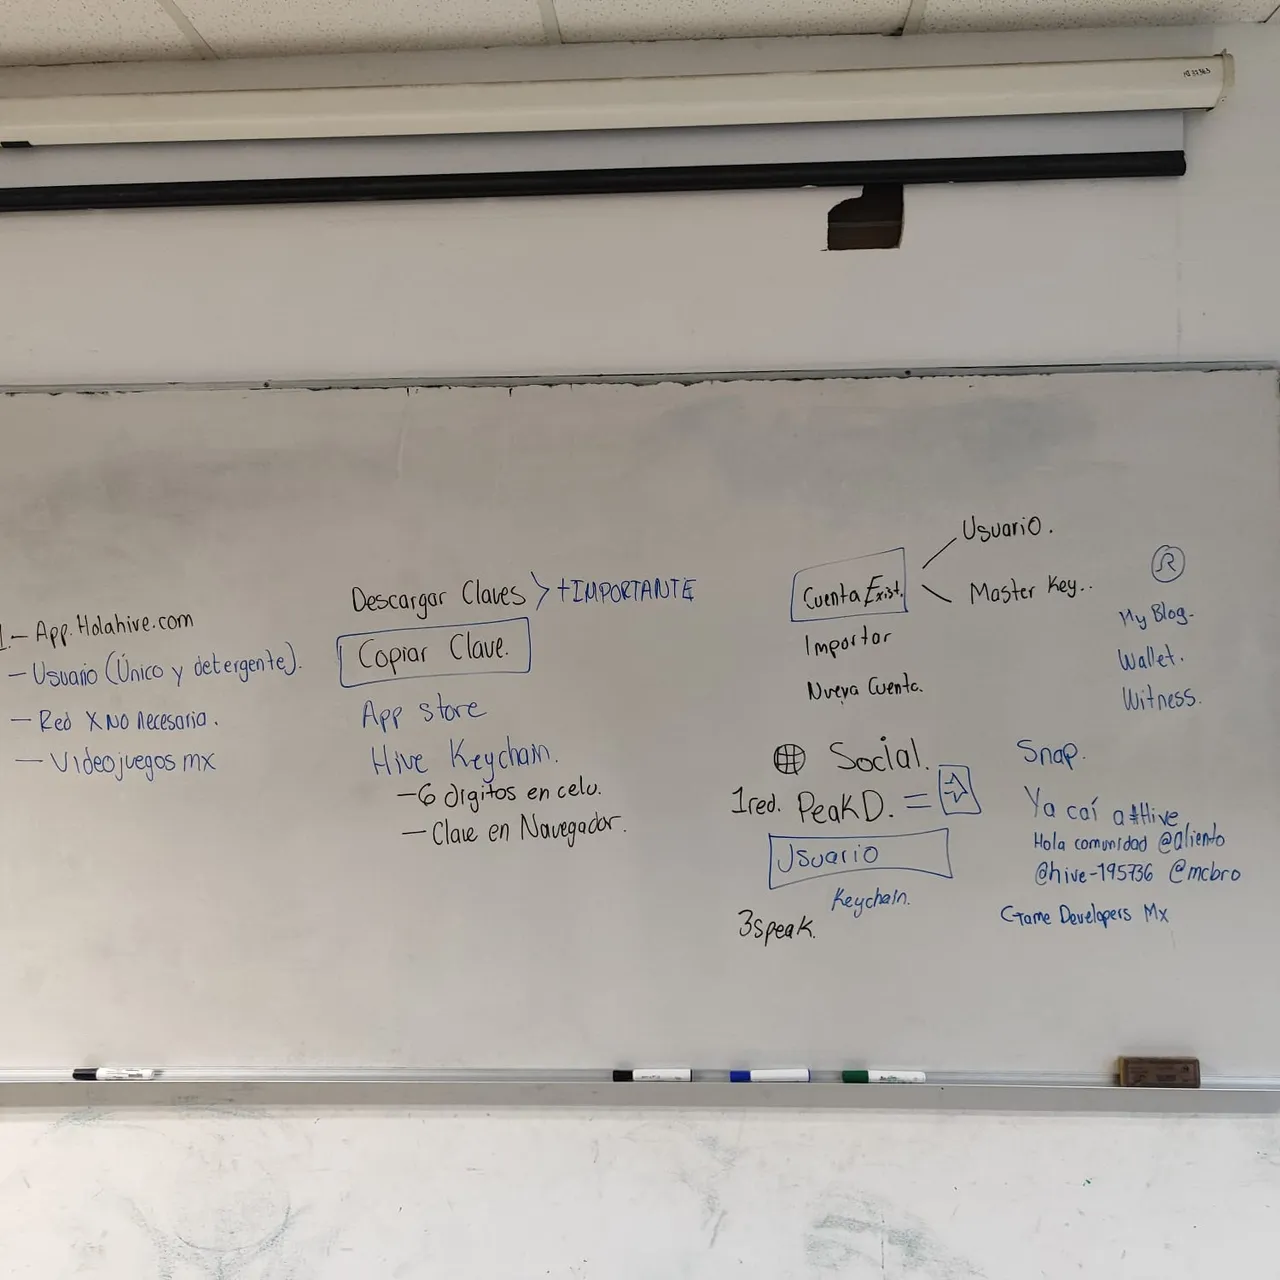 1.- App.Holahive.com
- Usuario (Único y detergente).
- Red X No necesaria.
- Videojuegos mx
Descargar Claves > +IMPORTANTE
Copiar Clave.
App store
Hive Keychain.
- 6 digitos en celu.
- Clave en Navegador.
Cuenta Exist.
Usuario.
Master Key..
Importar
Nueva Cuenta.
Social.
1red. PeakD. =
Usuario
Keychain.
3speak.
R
My Blog.
Wallet.
Witness.
Snap.
Ya caí a #Hive
Hola comunidad @aliento
@hive-195736 @mcbro
Game Developers Mx